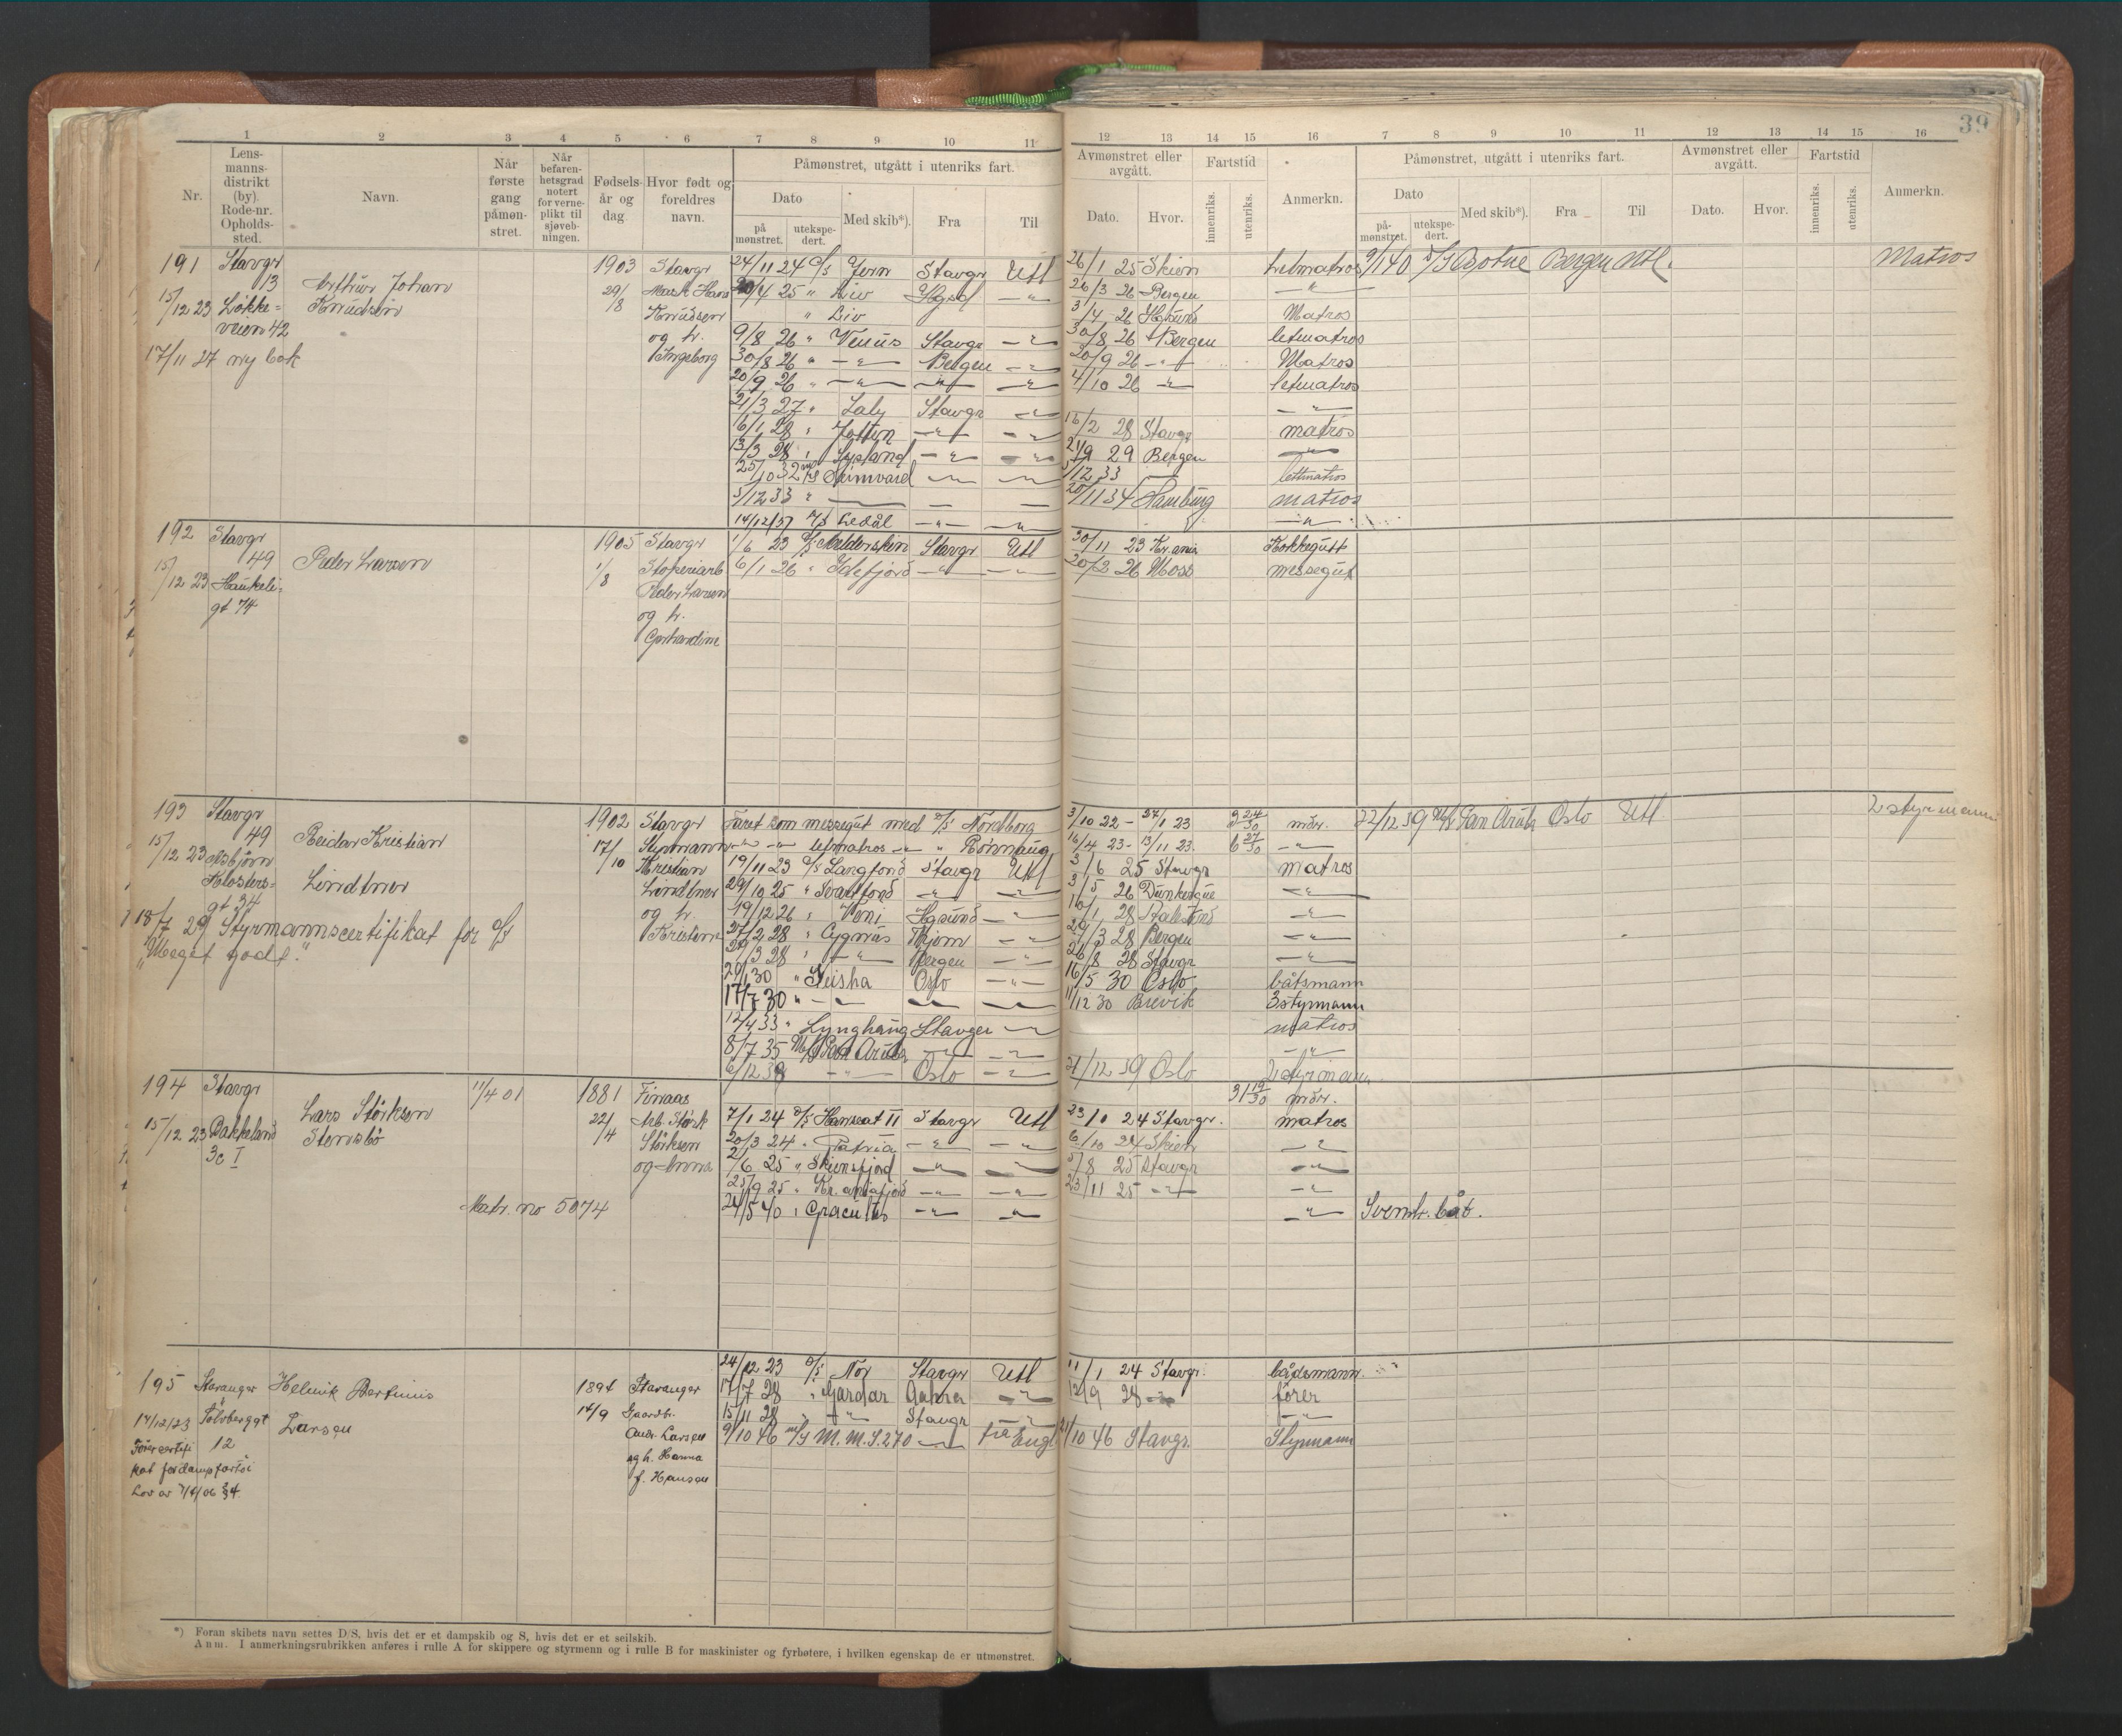 39
1 2 3 4 5 6 7 8 9 10 11 12 13 14 15 16 7 8 9 10 11 12 13 14 15 16
Nr.
Lens-
manns-
distrikt
(by).
Rode-nr.
Opholds-
sted.
Navn.
Når
første
gang
påmøn-
stret.
Når
befaren-
hetsgrad
notert
for verne-
plikt til
sjøveb-
ningen.
Fødsels-
år og
dag
Hvor født og
foreldres
navn.
Påmønstret, utgått i utenriks fart.
Dato
på
mønstret.
utekspe-
dert.
Med skib*).
Fra
Til
Avmønstret eller
avgått.
Dato.
Hvor.
Fartstid
innenriks.
utenriks.
Anmerkn.
Påmønstret, utgått i utenriks fart.
Dato
på-
mønstret.
utekspe-
dert.
Med skib*).
Fra
Til
Avmønstret eller
avgått.
Dato.
Hvor.
Fartstid
innenriks.
utenriks.
Anmerkn.
191 Stavgr
13
15/12 23 Løkke-
veien 42
17/11 27 ny bok
Arthur Johan
Knudsen
1903
29/8
Stavgr
Mask Hans
Knudsen
og h.
Ingeborg
24/11 24 D/S Jern Stavgr Utl 26/1 25 Skien Letmatros 9/1 40 D/S Botne Bergen Utl. Matros
4 25 " Liv Hgsd — " — 26/3 26 Bergen — " —
" Liv 3/4 26 Hgsund Matros
9/8 26 " Venus Stavgr — " — 30/8 26 Bergen letmatros
30/8 26 " — " — Bergen — " — 20/9 26 — " — Matros
20/9 26 " — " — — " — — " — 4/10 26 — " — letmatros
21/3 27 " Laly Stavgr — " — — " —
6/1 28 " Jotten — " — — " — 16/2 28 Stavgr matros
13/3 28 " Sysland — " — — " — 21/9 29 Bergen — " —
25/10 32 — " — — " — 5/12 33 — lettmatros
5/12 33 " — — — 20/11 34 Hamburg matros
14/12/37 M/S Ledål — " — — " — — " —
192 Stavgr
49
15/12 23 Haukeli-
gt 74
Peder Larsen
1905
1/8
Stavgr
Stoperiarb
Peder Larsen
og h.
Gerhardine
1/6 23 D/S Melderskin Stavgr Utl 30/11 23 Kr.ania Kokkegutt
6/1 26 " Idefjord — " — — " — 20/2 26 Moss messegut
193 Stavgr
49
15/12 23 Asbjørn
Klosters-
gt 34
Reidar Kristian
Lindtner
18/7 29 Styrmannscertifikat for D/S
"Meget godt."
1902
17/10
Stavgr
Styrmann
Kristian
Lindtner
og h.
Kristine
Faret som messegut med D/S Nordborg 3/10 22 - 27/1 23 3 24/30 mdr. 22/12 39 M/S San Aruta Oslo Utl 2 styrmann
— " — — " — letmatros — " — " Rønnaug 16/4 23 - 13/11 23 6 27/30 — " —
19/11 23 D/S Langfond Stavgr Utl 3/6 25 Stavgr matros
29/10 25 " Svartfond — " — — " — 3/5 26 Dunkerque — " —
19/12 26 " Veni Hgsund — " — 16/1 28 — " —
27/2 28 " Cygnus — " — 29/3 28 Bergen — " —
29/3 28 " — " — Bergen — " — 26/8 28 Stavgr — " —
20/1 30 " Geisha Oslo — " — 16/5 30 Oslo båtsmann
17/7 30 " — " — — " — — " — 11/12 30 Brevik 3 styrmann
12/4 33 " Lynghaug Stavger — " — matros
8/7 35 M/S San Aruta — " — — " — — " —
6/12 38 — " — Oslo — " — 21/12 39 Oslo 2 styrmann
194 Stavgr
15/12 23 Bakkeland
3c I
Lars Størksen
Stensbø
11/4 01
1881
22/4
Finaas
Arb. Størk
Størksen
og Anna
Matr. no 5074
31 19/30 mdr.
7/1 24 D/S Hanseat II Stavgr Utl 23/10 24 Stavgr. matros
20/3 24 " Patria — " — — " — 6/10 24 Skien — " —
2/6 25 " Skiensfjord — " — — " — 5/8 25 Stavgr — " —
25/9 25 " Kr.aniafjord — " — — " — 23/11 25 — " — — " —
24/5 40 " Graculus — " — — " — — " —
195 Stavanger
14/12/23 Tolvberggt
12
Førercertifi
kat for dampfartøi
Lov av 7/4/06 § 4.
Helmik Bertinius
Larsen
1894
14/9
Stavanger
Gaardbr.
Andr. Larsen
og h. Hanna
f. Hansen
24/12 23 D/S Nor Stavgr Utl 11/1 24 Stavgr. bådsmann
17/7 28 " Gardar — " — 12/9 28 — " — fører
15/11 28 " — " — Stavgr — " — — " —
9/10 46 m/S M.M.S.270 — " — til Engl 21/10 46 Stavgr. Styrmann
*) Foran skibets navn settes D/S, hvis det er et dampskib og S, hvis det er et seilskib.
Anm. I anmerkningsrubrikken anføres i rulle A for skippere og styrmenn og i rulle B for maskinister og fyrbøtere, i hvilken egenskap de er utmønstret.